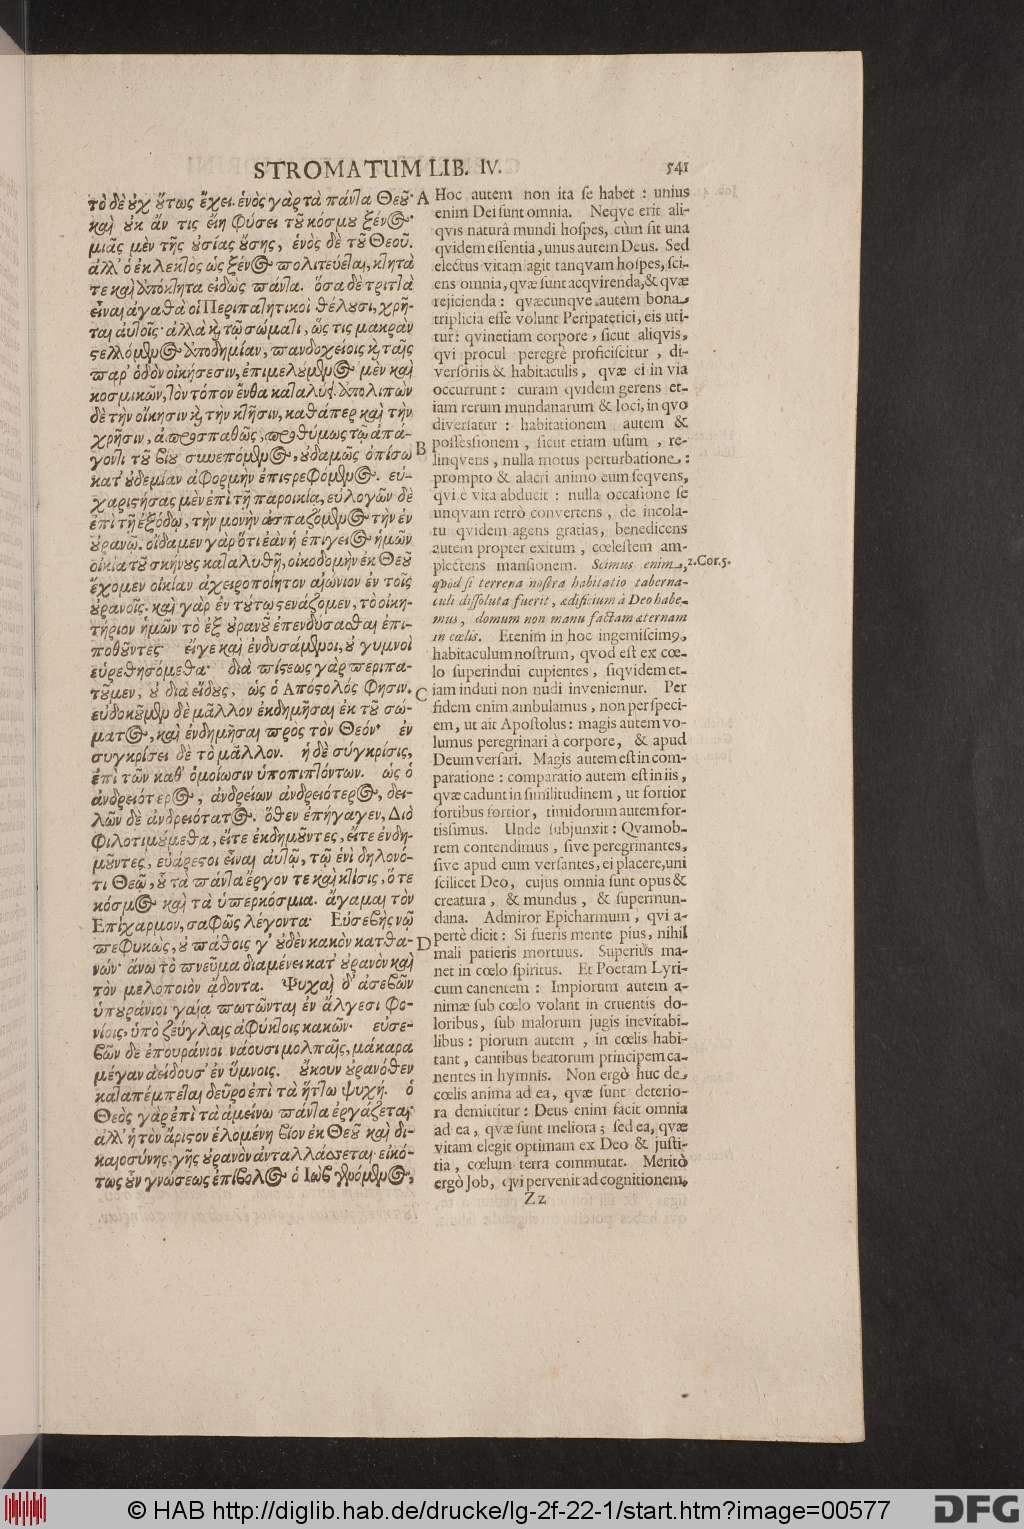 STROMATUM LIB. IV. 541
τὸ δὲ ȣ̓χ ȣ̔́τως ἔχει. ἑνὸς γὰρ τὰ πάντα Θεȣ͂·
καὶ ȣ̓κ ἄν τις εἴη φύσει τȣ͂ κόσμȣ ξένος
μιᾶς μὲν τῆς ȣ̓σίας ȣ̓́σης, ἑνὸς δὲ τȣ͂ Θεοῦ.
ἀλλ' ὁ ἐκλεκτὸς ὡς ξένος πολιτεύεται, κτητὰ
τε καὶ ἀπόκτητα εἰδὼς πάντα. ὅσα δὲ τριττὰ
εἶναι ἀγαθὰ οἱ Περιπατητικοὶ θέλȣσι, χρῆ-
ται αὐτοῖς· ἀλλὰ κ τῷ σώματι, ὥς τις μακρὰν
στελλόμενος ἀποδημίαν, πανδοχείοις κ ταῖς
παρ' ὁδὸν οἰκήσεσιν, ἐπιμελȣ́μενος μὲν καὶ
κοσμικῶν, τὸν τόπον ἔνθα καταλύει. ἀπολιπὼν
δὲ τὴν οἴκησιν κ τὴν κτῆσιν, καθάπερ καὶ τὴν
χρῆσιν, ἀπροσπαθῶς, προθύμως τῷ ἀπά-
γοντι τȣ͂ βίȣ συνεπόμενος, ȣ̓δαμῶς ὀπίσω
κατ' ȣ̓δεμίαν ἀφορμὴν ἐπιστρεφόμενος. εὐ-
χαριστήσας μὲν ἐπὶ τῇ παροικία, εὐλογῶν δὲ
ἐπὶ τῇ ἐξόδῳ, τὴν μονὴν ἀσπαζόμενος τὴν ἐν
ȣ̓ρανῷ. οἴδαμεν γὰρ ὅτι ἐὰν ἡ ἐπίγειος ἡμῶν
οἰκία τȣ͂ σκήνȣς καταλυθῇ, οἰκοδομὴν ἐκ Θεȣ͂
ἔχομεν οἰκίαν ἀχειροποίητον αἰώνιον ἐν τοῖς
ȣ̓ρανοῖς. καὶ γὰρ ἐν τȣ́τῳ στενάζομεν, τὸ οἰκη-
τήριον ἡμῶν τὸ ἐξ ȣ̓ρανȣ͂ ἐπενδύσασθαι ἐπι-
ποθȣ͂ντες· εἴγε καὶ ἐνδυσάμενοι, ȣ̓ γυμνοὶ
εὑρεθησόμεθα· διὰ πίστεως γὰρ περιπα-
τȣ͂μεν, ȣ̓ διὰ εἴδȣς, ὡς ὁ Ἀπόστολός φησιν.
εὐδοκȣ͂μεν δὲ μᾶλλον ἐκδημῆσαι ἐκ τȣ͂ σώ-
ματος, καὶ ἐνδημῆσαι πρὸς τὸν Θεόν· ἐν
συγκρίσει δὲ τὸ μᾶλλον. ἡ δὲ σύγκρισις,
ἐπὶ τῶν καθ' ὁμοίωσιν ὑποπιπτόντων. ὡς ὁ
ἀνδρειότερος, ἀνδρείων ἀνδρειότερος, δει-
λῶν δὲ ἀνδρειότατος. ὅθεν ἐπήγαγεν, Διὸ
φιλοτιμȣ́μεθα, εἴτε ἐκδημȣ͂ντες, εἴτε ἐνδη-
μȣ͂ντες, εὐάρεστοι εἶναι αὐτῷ, τῷ ἑνὶ δηλονό-
τι Θεῷ, ȣ̔͂ τὰ πάντα ἔργον τε καὶ κτίσις, ὅ τε
κόσμος καὶ τὰ ὑπερκόσμια. ἄγαμαι τὸν
Ἐπίχαρμον, σαφῶς λέγοντα· Εὐσεβὴς νῷ
πεφυκὼς, ȣ̓ πάθοις γ' ȣ̓δὲν κακὸν κατθα-
νών· ἄνω τὸ πνεῦμα διαμένει κατ' ȣ̓ρανὸν καὶ
τὸν μελοποιὸν ᾄδοντα. Ψυχαὶ δ' ἀσεβῶν
ὑπȣράνιοι γαίᾳ πωτῶνται ἐν ἄλγεσι φο-
νίοις, ὑπὸ ζεύγλαις ἀφύκτοις κακῶν· εὐσε-
βῶν δὲ ἐπουράνιοι νάουσι μολπαῖς, μάκαρα
μέγαν ἀείδουσ' ἐν ὕμνοις. ȣ̓́κουν ȣ̓ρανόθεν
καταπέμπεται δεῦρο ἐπὶ τὰ ἥττω ψυχή. ὁ
Θεὸς γὰρ ἐπὶ τὰ ἀμείνω πάντα ἐργάζεται·
ἀλλ' ἡ τὸν ἄριστον ἑλομένη βίον ἐκ Θεȣ͂ καὶ δι-
καιοσύνης, γῆς ȣ̓ρανὸν ἀνταλλάσσεται· εἰκό-
τως ȣ̓͂ν γνώσεως ἐπίβολος ὁ Ἰὼβ γενόμενος,
A
B
C
D
Hoc autem non ita se habet : unius
enim Dei sunt omnia. Neqve erit ali-
qvis naturâ mundi hospes, cùm sit una
qvidem essentia, unus autem Deus. Sed
electus vitam agit tanqvam hospes, sci-
ens omnia, qvæ sunt acqvirenda, & qvæ
rejicienda : qvæcunqve autem bona
triplicia esse volunt Peripatetici, eis uti-
tur : qvinetiam corpore, sicut aliqvis,
qvi procul peregrè proficiscitur, di-
versoriis & habitaculis, qvæ ei in via
occurrunt : curam qvidem gerens et-
iam rerum mundanarum & loci, in qvo
diversatur : habitationem autem &
possessionem, sicut etiam usum, re-
linqvens, nulla motus perturbatione :
prompto & alacri animo eum seqvens,
qvi è vita abducit : nulla occasione se
unqvam retrò convertens, de incola-
tu qvidem agens gratias, benedicens
autem propter exitum, cœlestem am-
plectens mansionem. Scimus enim, 2. Cor. 5.
qvod si terrena nostra habitatio taberna-
culi dissoluta fuerit, ædificium à Deo habe-
mus, domum non manu factam æternam
in cœlis. Etenim in hoc ingemiscimꝰ,
habitaculum nostrum, qvod est ex cœ-
lo superindui cupientes, siqvidem et-
iam induti non nudi inveniemur. Per
fidem enim ambulamus, non per speci-
em, ut ait Apostolus: magis autem vo-
lumus peregrinari à corpore, & apud
Deum versari. Magis autem est in com-
paratione : comparatio autem est in iis,
qvæ cadunt in similitudinem, ut fortior
fortibus fortior, timidorum autem for-
tissimus. Unde subjunxit : Qvamob-
rem contendimus, sive peregrinantes,
sive apud eum versantes, ei placere, uni
scilicet Deo, cujus omnia sunt opus &
creatura, & mundus, & supermun-
dana. Admiror Epicharmum, qvi a-
pertè dicit : Si fueris mente pius, nihil
mali patieris mortuus. Superiùs ma-
net in cœlo spiritus. Et Poetam Lyri-
cum canentem : Impiorum autem a-
nimæ sub cœlo volant in cruentis do-
loribus, sub malorum jugis inevitabi-
libus : piorum autem, in cœlis habi-
tant, cantibus beatorum principem ca-
nentes in hymnis. Non ergò huc de
cœlis anima ad ea, qvæ sunt deterio-
ra demittitur : Deus enim facit omnia
ad ea, qvæ sunt meliora; sed ea, qvæ
vitam elegit optimam ex Deo & justi-
tia, cœlum terra commutat. Meritò
ergò Job, qvi pervenit ad cognitionem,
Z z
© HAB http://diglib.hab.de/drucke/lg-2f-22-1/start.htm?image=00577
DFG